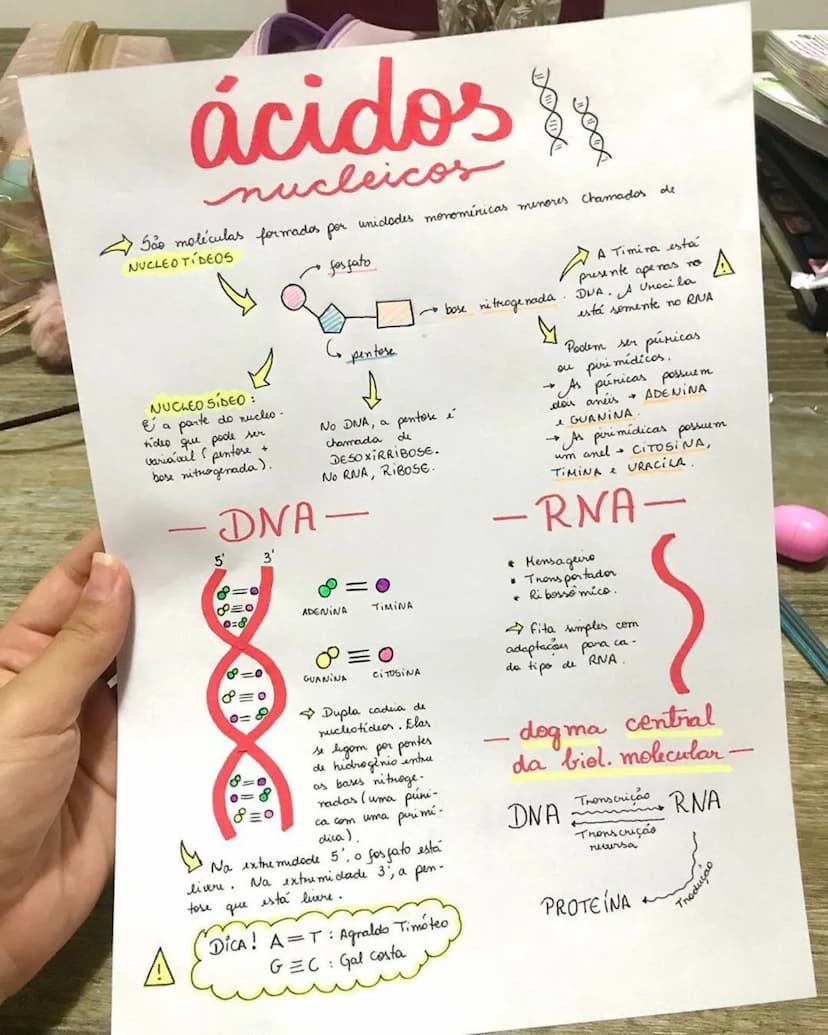 ácidos
nucleicos
São moléculas formados por unidades monoméricas menores chamados de
NUCLEOTÍDEOS
fosfato
base nitrogenada.
pentose
A Timina está
presente apenas no
DNA. A Uracila
está somente no RNA
Podem ser púricas
ou pirimídicos.
→ As púricas possuem
dois anéis → ADENINA
e GUANINA.
→ As pirimídicas possuem
um anel → CITOSINA,
TIMINA e URACILA.
NUCLEOSÍDEO:
É a parte do nucleo-
tídeo que pode ser
variável (pentose +
base nitrogenada).
No DNA, a pentose é
chamada de
DESOXIRRIBOSE.
No RNA, RIBOSE.
— DNA —
5' 3'
ADENINA = TIMINA
GUANINA ≡ CITOSINA
⇒ Dupla cadeia de
nucleotídeos. Elas
se ligam por pontes
de hidrogênio entre
as bases nitroge-
nadas (uma púri-
ca com uma pirimí-
dica).
Na extremidade 5', o fosfato está
livre. Na extremidade 3', a pen-
tose que está livre.
DICA! A = T : Agnaldo Timóteo
G ≡ C : Gal Costa
— RNA —
• Mensageiro
• Transportador
• Ribossômico.
⇒ Fita simples com
adaptações para ca-
da tipo de RNA.
— dogma central
da biol. molecular —
DNA Transcrição RNA
Transcrição
reversa
Tradução
PROTEÍNA